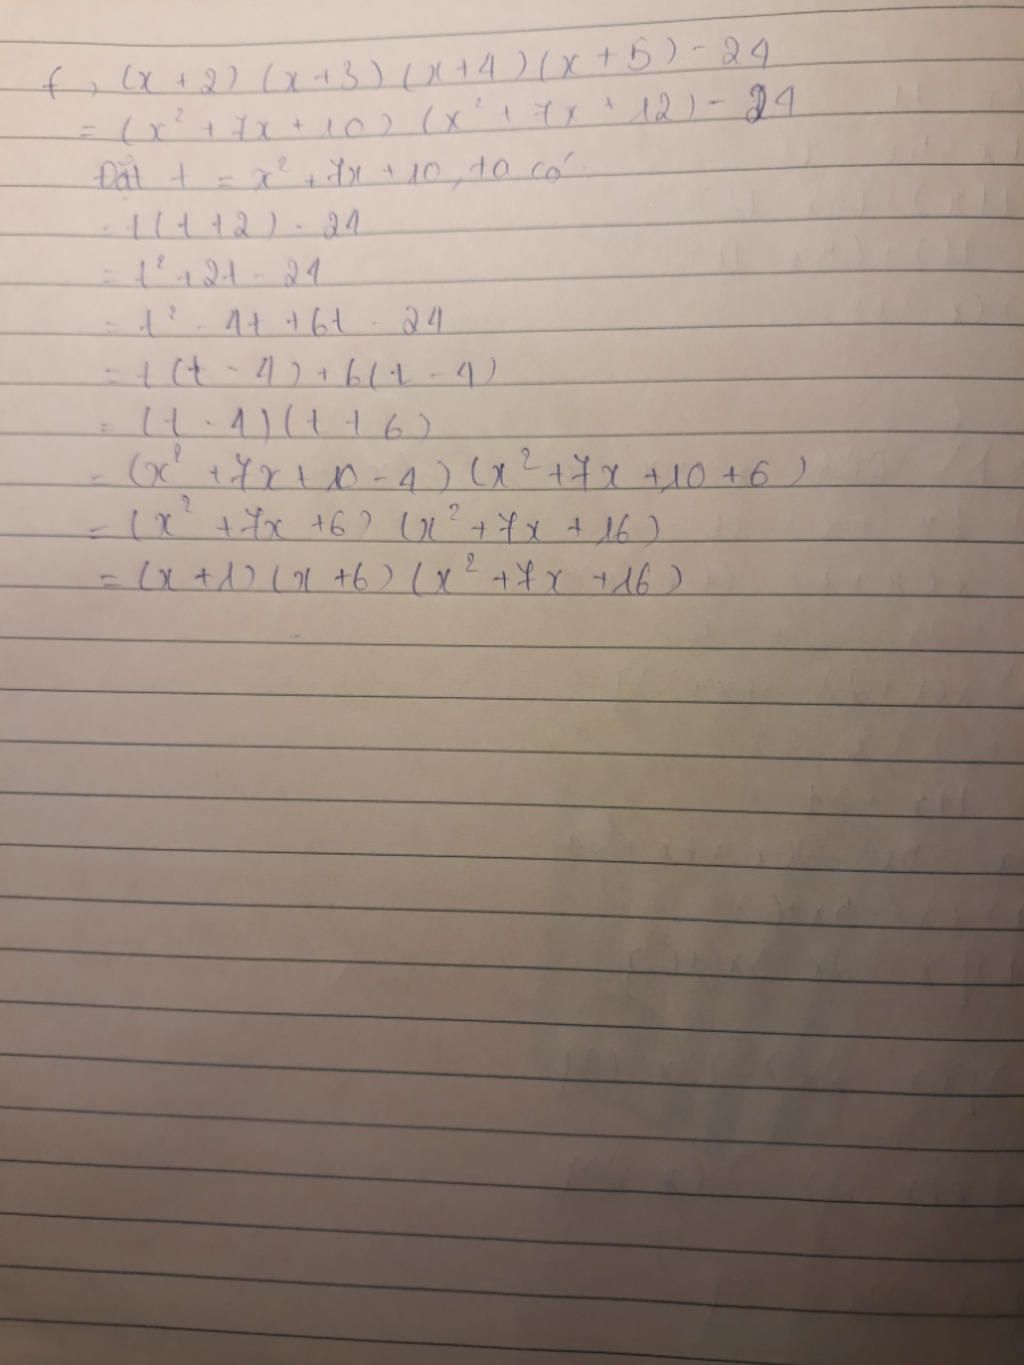 f, (x+2)(x+3)(x+4)(x+5)-24
= (x² + 7x + 10) (x² + 7x + 12) - 24
Đặt t = x² + 7x + 10, ta có:
= t(t+2) - 24
= t² + 2t - 24
= t² - 4t + 6t - 24
= t(t - 4) + 6(t - 4)
= (t - 4)(t + 6)
= (x² + 7x + 10 - 4) (x² + 7x + 10 + 6)
= (x² + 7x + 6) (x² + 7x + 16)
= (x + 1) (x + 6) (x² + 7x + 16)